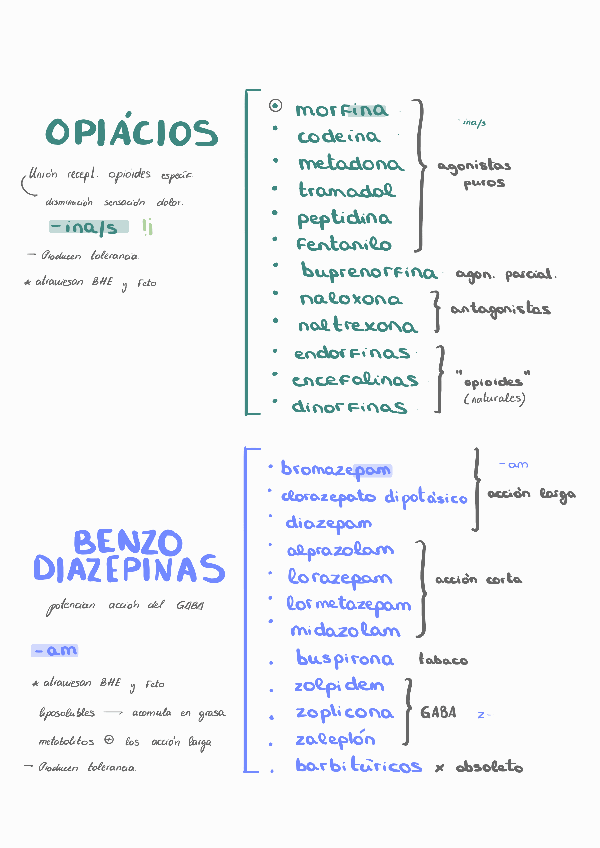 OPIÁCIOS
Unión recept. opioides específ.
disminución sensación dolor.
-ina/s !¡
- Producen tolerancia.
* atraviesan BHE y feto
• morfina
• codeína
• metadona
• tramadol
• peptidina
• fentanilo
-ina/s
agonistas
puros
• buprenorfina agon. parcial.
• naloxona
• naltrexona
antagonistas
• endorfinas
• encefalinas
• dinorfinas
"opioides"
(naturales)
BENZO
DIAZEPINAS
potencian acción del GABA
-am
* atraviesan BHE y feto
liposolubles → acumula en grasa
metabolitos ⊕ los acción larga
- Producen tolerancia.
• bromazepam
• clorazepato dipotásico
• diazepam
-am
acción larga
• alprazolam
• lorazepam
• lormetazepam
• midazolam
acción corta
• buspirona tabaco
• zolpidem
• zoplicona
• zaleplón
GABA z-
• barbitúricos x obsoleto